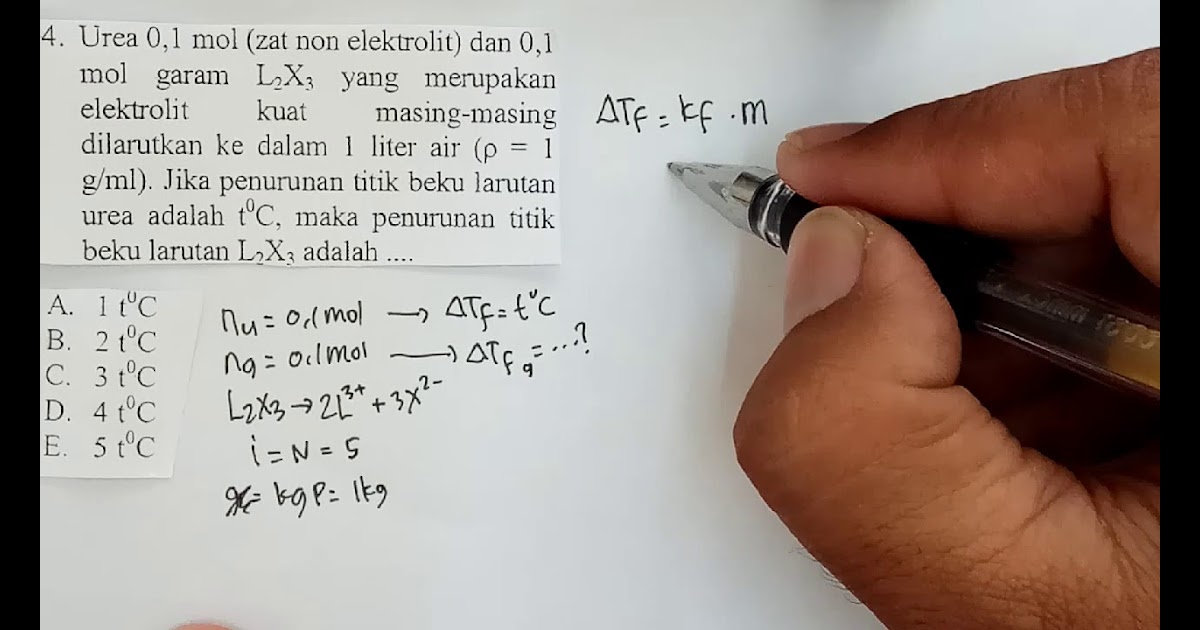 4. Urea 0,1 mol (zat non elektrolit) dan 0,1
mol garam L₂X₃ yang merupakan
elektrolit kuat masing-masing
dilarutkan ke dalam 1 liter air (ρ = 1
g/ml). Jika penurunan titik beku larutan
urea adalah t⁰C, maka penurunan titik
beku larutan L₂X₃ adalah ....
A. 1 t⁰C
B. 2 t⁰C
C. 3 t⁰C
D. 4 t⁰C
E. 5 t⁰C
nu = 0,1 mol → ΔTf = t⁰C
ng = 0,1 mol → ΔTfg = ...?
L₂X₃ → 2L³⁺ + 3X²⁻
i = N = 5
kg P = 1 kg
ΔTf = kf . m